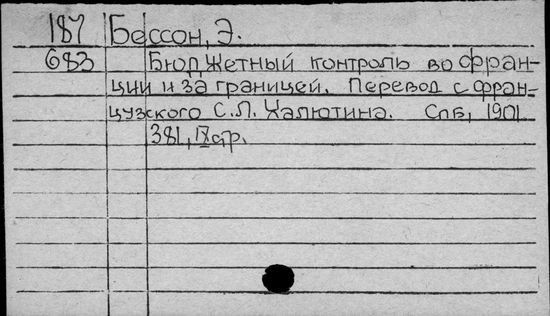 187 Бессон, Э.
683 Бюджетный контроль во Фран-
ции и за границей. Перевод с фран-
цузского С.Л. Халютина. Спб, 1901.
381, IX стр.